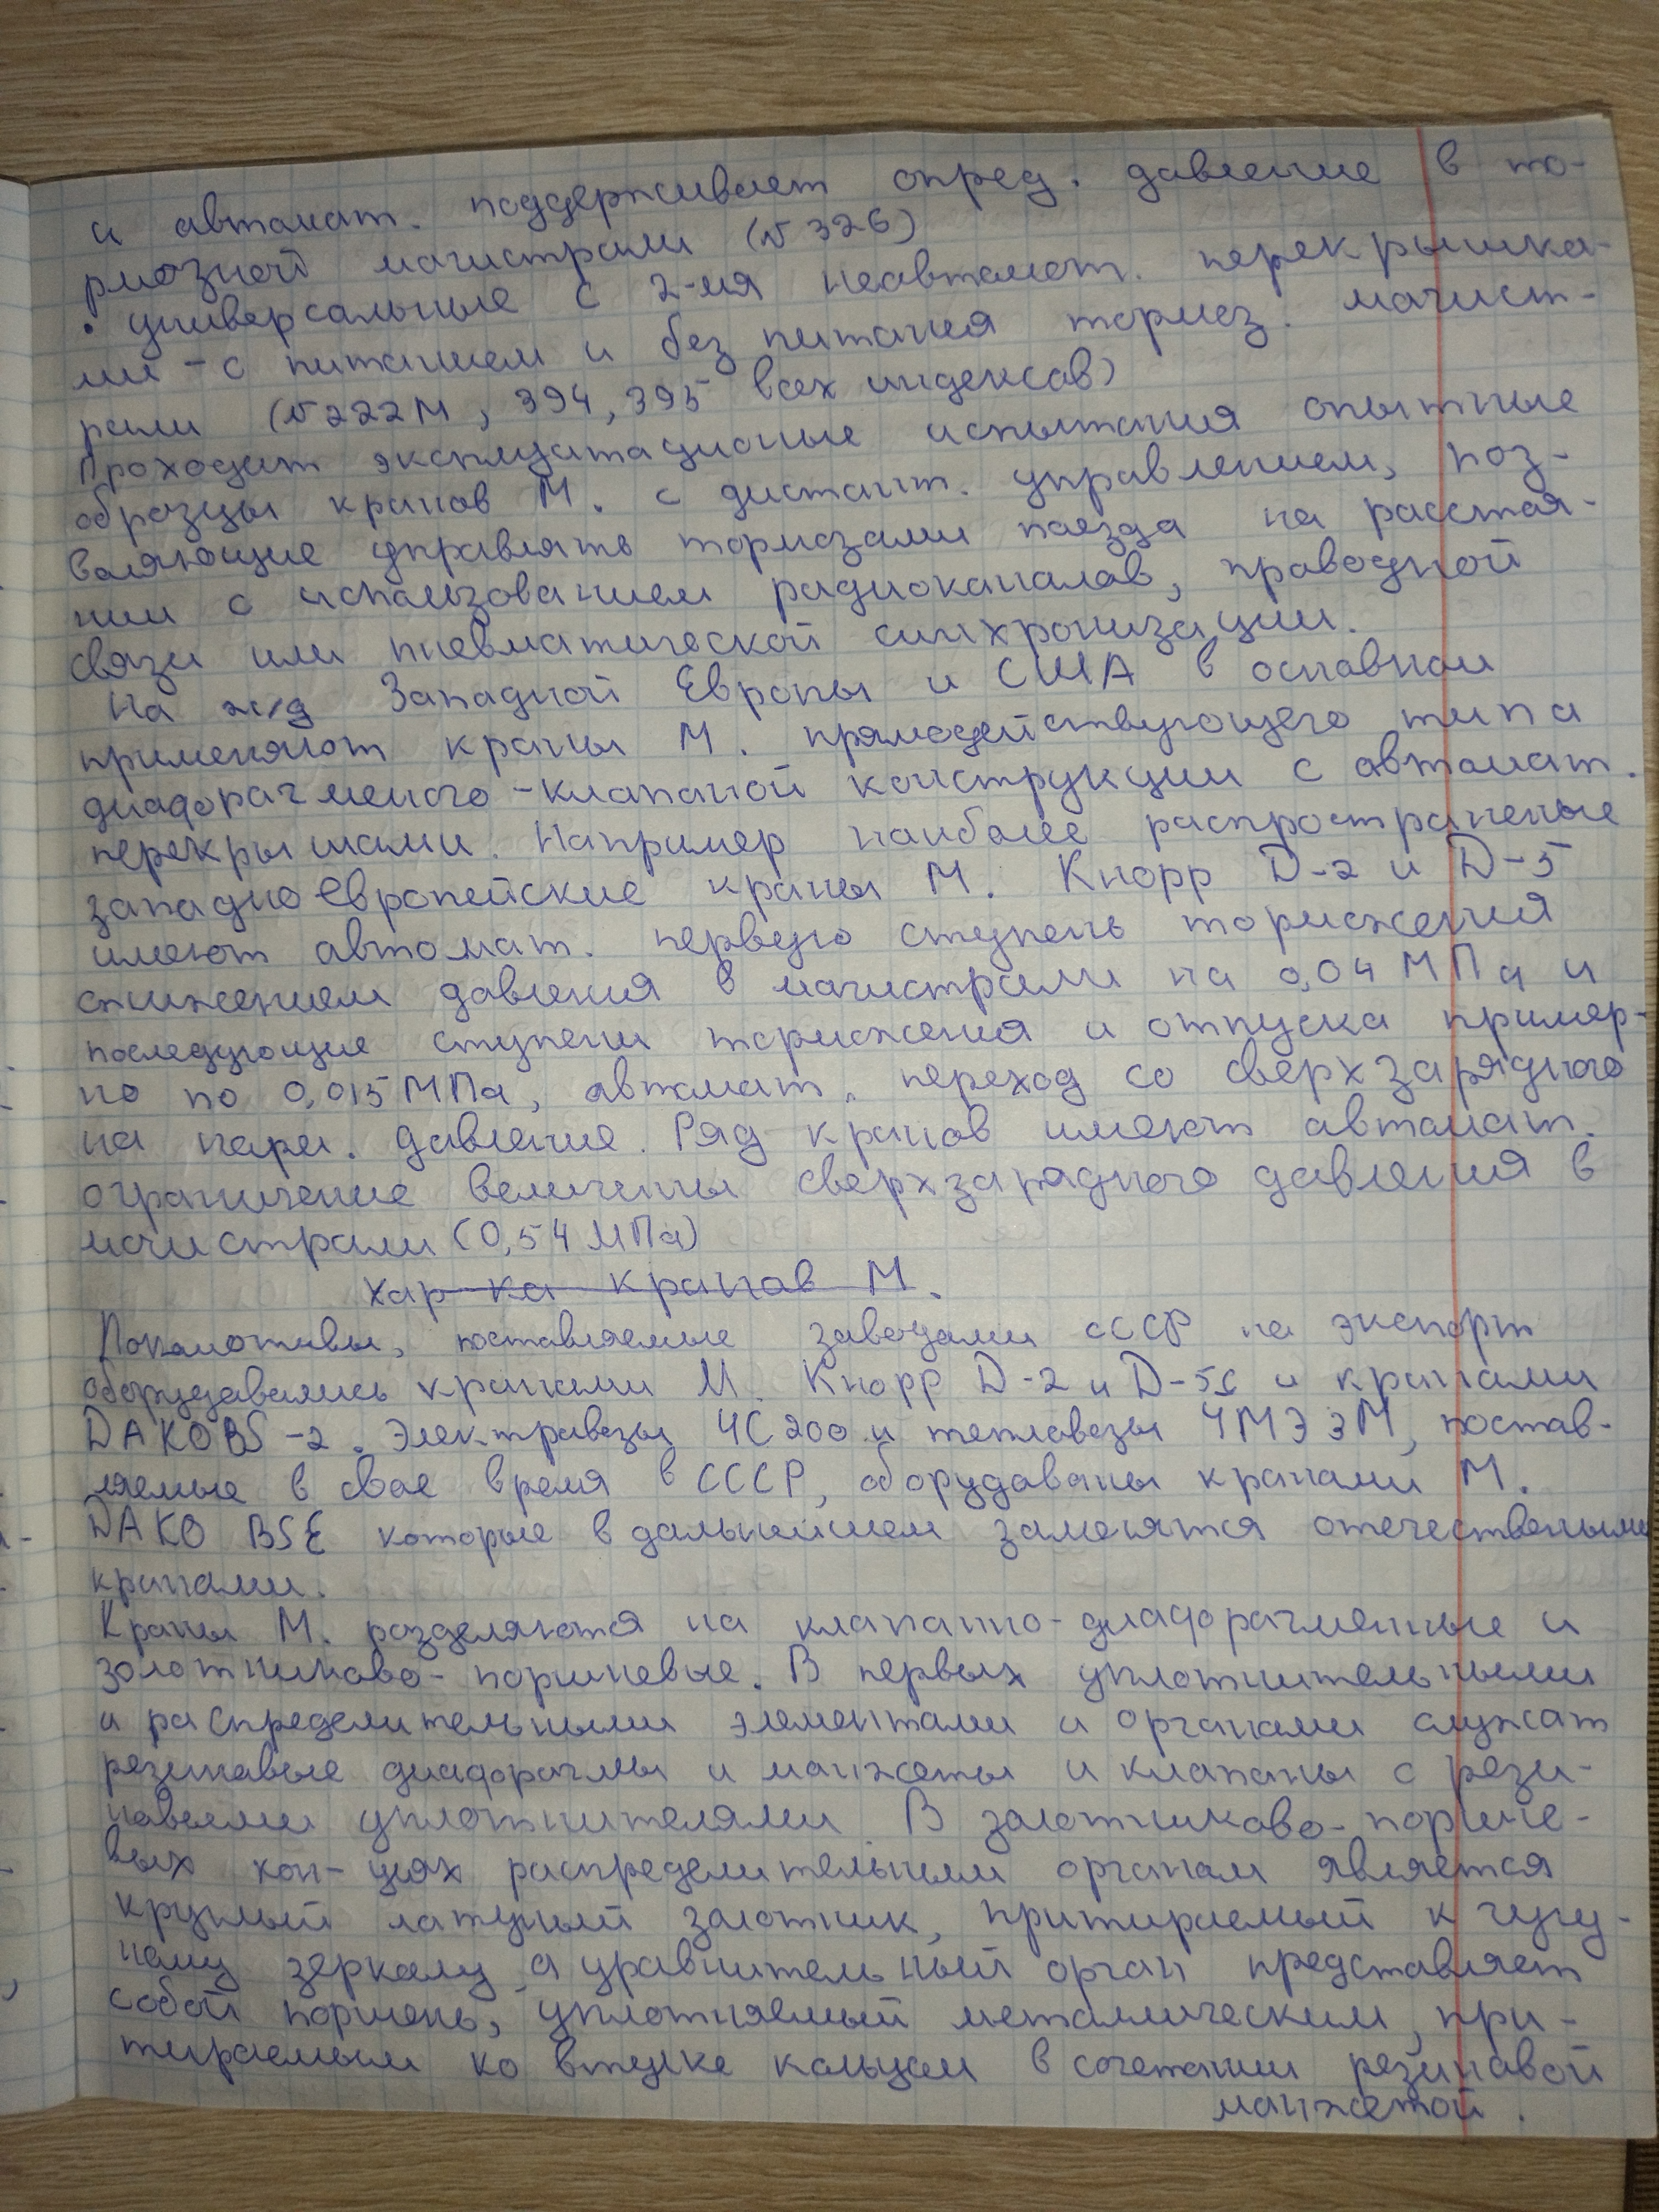 и автомат. поддерживает опред. давление в то-
рмозной магистрали (№ 326)
• универсальные с 2-мя неавтомат. перекрышка-
ми - с питанием и без питания тормоз. магист-
рали (№ 222М, 394, 395 всех индексов)
Проходят эксплуатационые испытания опытные
образцы кранов М. с дистант. управлением, поз-
воляющие управлять тормозами поезда на расстоя-
нии с использованием радиоканалов, проводной
связи или пневматической синхронизации.
На ж/д Западной Европы и США в основном
применяют краны М. прямодействующего типа
диафрагменого-клапаной конструкции с автомат.
перекрышами. Например наиболее распространеные
западноевропейские краны М. Кнорр D-2 и D-5
имеют автомат. первую ступень торможения
снижением давления в магистрали на 0,04 МПа и
последующие ступени торможения и отпуска пример-
но по 0,015 МПа, автомат. переход со сверхзарядного
на норм. давление. Ряд кранов имеют автомат.
ограничение величины сверхзарядного давления в
магистрали (0,54 МПа)
Хар-ка кранов М.
Локомотивы, поставляемые заводами СССР на экспорт
оборудовались кранами М. Кнорр D-2 и D-5с и кранами
DAKO BS-2. Электровозы ЧС200 и тепловозы ЧМЭ3М, постав-
ляемые в свое время в СССР, оборудованы кранами М.
DAKO BSE которые в дальнейшем заменятся отечествеными
кранами.
Краны М. разделяются на клапанно-диафрагменные и
золотниково-поршневые. В первых уплотнительными
и распределительными элементами и органами служат
резиновые диафрагмы и манжеты и клапаны с рези-
новыми уплотнителями. В золотниково-поршне-
вых кон-циях распределительным органом является
круглый латуный золотник, притираемый к чугу-
ному зеркалу, а уравнительный орган представляет
собой поршень, уплотняемый металлическим, при-
тираемым ко втулке кольцом в сочетании резиновой
манжетой.